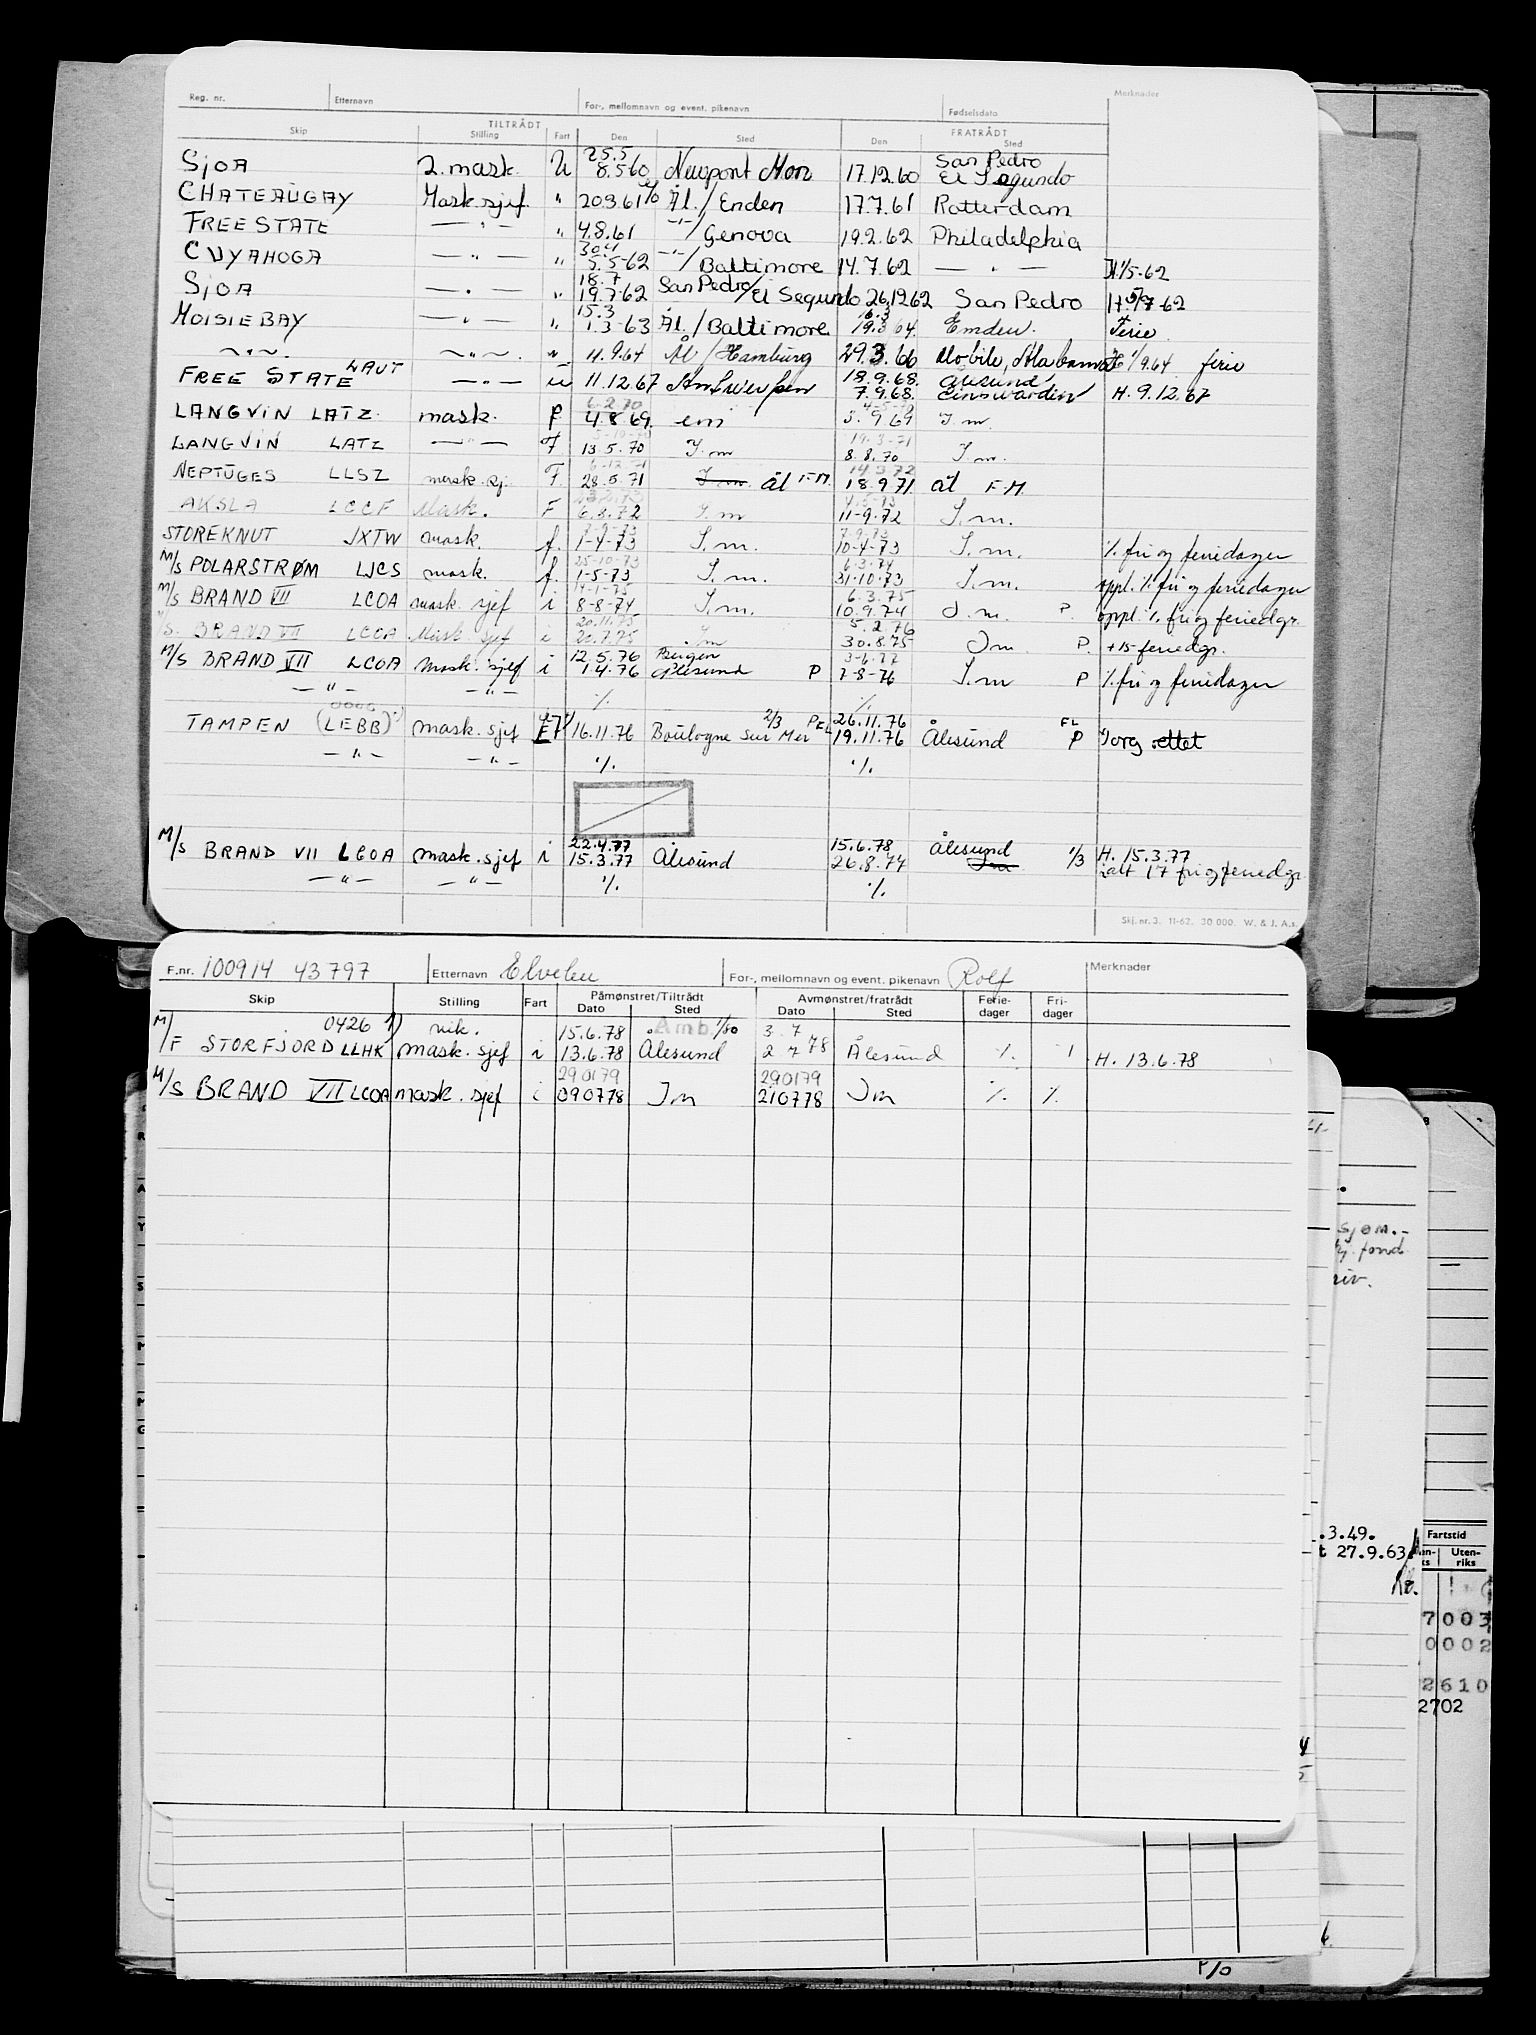 Reg. nr. Etternavn For-, mellomnavn og event. pikenavn Fødselsdato Merknader
TILTRÅDT FRATRÅDT
Skip Stilling Fart Den Sted Den Sted
25.5 San Pedro
SJOA 2. mask. U 8.5.60 Newport Mon 17.12.60 El Segundo
CHATEAUGAY Mask.sjef. " 20.3.61 Ål./Emden 17.7.61 Rotterdam
FREE STATE — " — " 4.8.61 -"-/Genova 19.2.62 Philadelphia
30.4
CUYAHOGA — " — " 5.5-62 -"-/Baltimore 14.7.62 — " — H 1/5-62
18.7
SJOA — " — " 19.7.62 San Pedro/El Segundo 26.12.62 San Pedro
15.3
MOISIE BAY — " — " 1.3-63 Ål./Baltimore 19.3.64 Emden. Ferie
~"~. ~"~. " 11.9.64 Ål/Hamburg 29.3.66 Mobile, Alabama 1/9.64 ferie
18.9.68. Ålesund
FREE STATE LAUT — " — u 11.12.67 Antwerpen 7.9.68. Einswarden H. 9.12.67
6-2-70
LANGVIN LATZ mask. f 4.8.69. em 3.9.69 I.m.
19-3-71
LANGVIN LATZ — " — F 13.5.70 I.m 8.8.70 I.m.
6-12-71 14.3.72
NEPTUGES LLSZ mask.sj. F. 28.5.71 I.m Ål F.M. 18.9.71 Ål F.M.
4.5.73
AKSLA LCCF Mask. F 6.8.72 I.m 11-9.72 I.m.
7.9.73
STOREKNUT JXTW mask. f. 1-4-73 I.m. 10-4-73 I.m. % fri og feriedager
25-10-73 6.3.74
M/S POLARSTRØM LJCS mask. f. 1-5-73 I.m. 31-10-73 I.m. oppl. % fri og feriedager
14-1-75 6.3.75
M/S BRAND VII LCOA mask. sjef i 8-8-74 I.m. 10.9.74 I.m. P. oppl. % fri og feriedgr.
20.11.75 5.2.76
M/S. BRAND VII LCOA Mask sjef i 20.7.75 I.m 30.8.75 I.m P. +15 feriedgr.
12.5.76 Bergen 3-6-77
M/S BRAND VII LCOA mask. sjef i 1.4.76 Ålesund P 7-8-76 I.m P % fri og feriedager
— " — — " — % %
2/3 P EL 26.11.76 FL
TAMPEN (LEBB) mask. sjef 16.11.76 Boulogne Sur Mer 19.11.76 Ålesund P
— " — — " — % %
22.4.77 15.6.78 Ålesund
M/S BRAND VII LCOA mask.sjef i 15.3.77 Ålesund 26.8.77 I.m 1/3 H. 15.3.77
— " — — " — % % ialt 17 fri og feriedgr.
Skj. nr. 3. 11-62. 30 000. W. & J. A.s.
F.nr. 100914 43797 Etternavn Elvelien For-, mellomnavn og event. pikenavn Rolf Merknader
Skip Stilling Fart Påmønstret/Tiltrådt Avmønstret/fratrådt Ferie- Fri-
Dato Sted Dato Sted dager dager
0426 1) vik. 15.6.78 Amb. 1/80 3.7
M/F STORFJORD LLHK mask. sjef i 13.6.78 Ålesund 2.7 78 Ålesund % 1 H. 13.6.78
290179 290179
M/S BRAND VII LCOA mask. sjef i 090778 I.m 210778 I.m % %
sjøm.-
fond
riv.
.3.49.
t 27.9.63
Fartstid
Uten-
riks
7003
0002
2610
2702